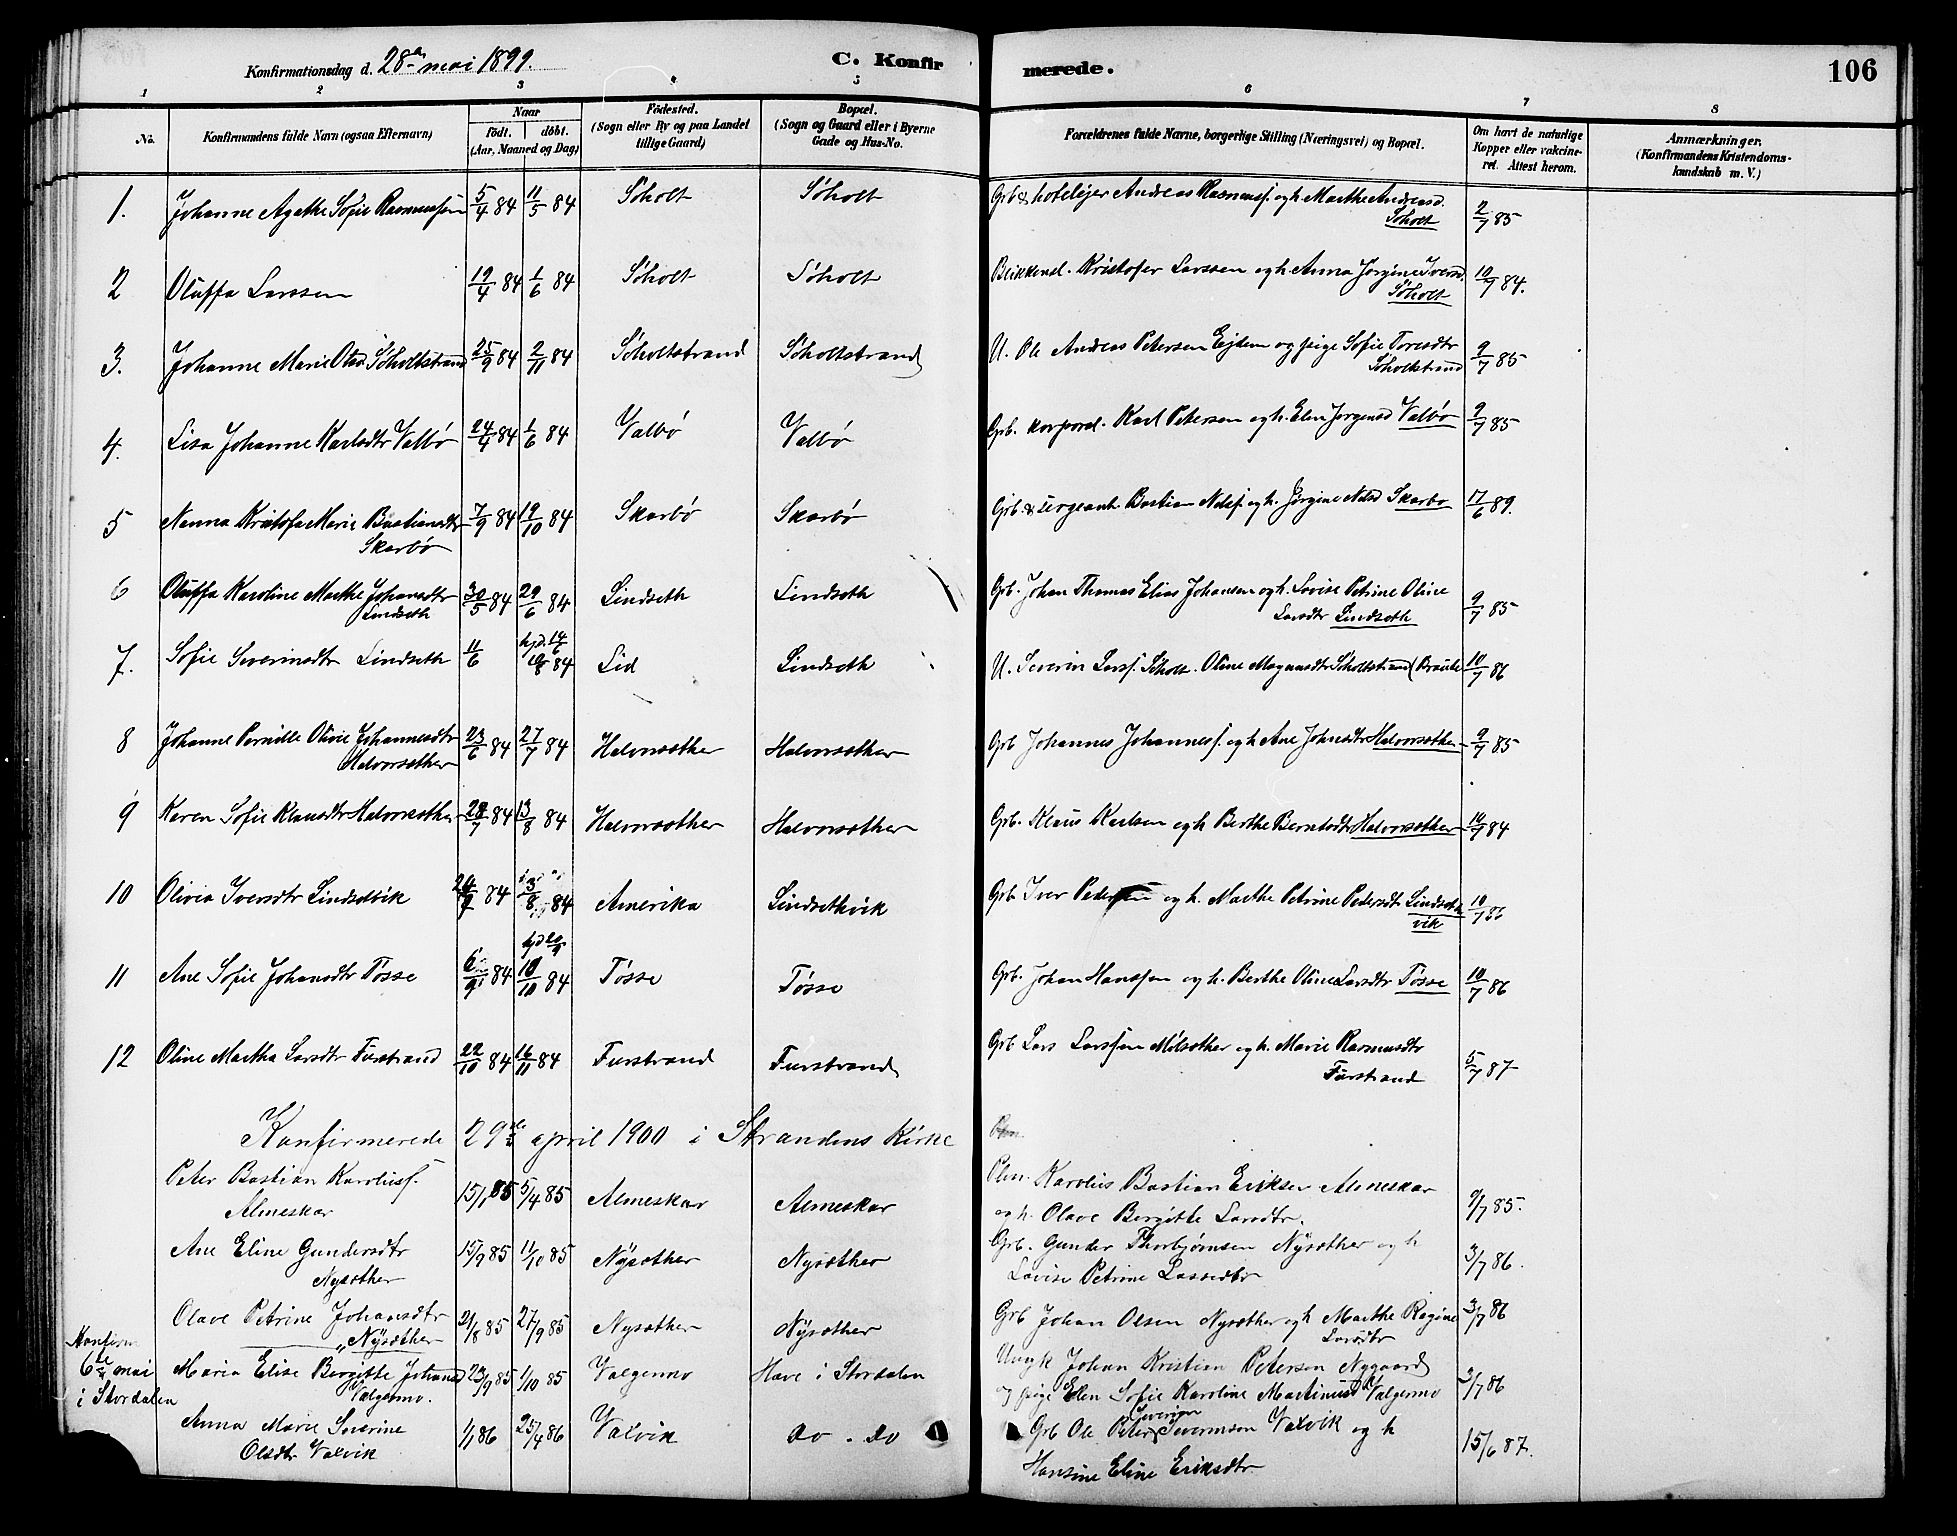 Konfirmationsdag d. 28de mai 1899.
C. Konfirmerede.
106
1 2 3 4 5 6 7 8
No.
Konfirmandens fulde Navn (ogsaa Efternavn)
Naar
födt. döbt.
(Aar, Maaned og Dag)
Födested.
(Sogn eller By og paa Landet
tillige Gaard)
Bopæl.
(Sogn og Gaard eller i Byerne
Gade og Hus-No.
Forældrenes fulde Navne, borgerlige Stilling (Næringsvei) og Bopæl.
Om havt de naturlige
Kopper eller vakcine-
ret. Attest herom.
Anmærkninger.
(Konfirmandens Kristendoms-
kundskab m. V.)
1. Johanne Agathe Sofie Rasmussen 5/4 84 11/5 84 Söholt Söholt Grb & hotelejer Andreas Rasmuss. og h. Marthe Andreasd.
Söholt 2/7 85
2 Oluffa Larssen 19/4 84 1/6 84 Söholt Söholt Blikkensl. Kristofer Larssen og h. Anna Jørgine Iversd.
Söholt 10/7 84.
3. Johanne Marie Olsd. Söholtstrand 25/9 84 2/11 84 Söholtstrand Söholtstrand U. Ole Andreas Petersen Ejdem og pige Sofie Toresdtr
Söholtstrand 9/7 85
4. Lisa Johanne Karlsdtr Valbø 24/4 84 1/6 84 Valbø Valbø Grb. korporal. Karl Petersen og h. Elen Jørgensd Valbø 9/7 85
5 Nanna Kristofa Marie Bastiansdtr
Skarbø 7/9 84 19/10 84 Skarbø Skarbø Grb. & sergeant. Bastian Nilss. og h. Jørgine Nilsd Skarbø 17/6 89.
6 Oluffa Karoline Marthe Johansdtr
Lindseth 30/5 84 29/6 84 Lindseth Lindseth Grb. Johan Thomas Elias Johansen og h. Lovise Petrine Oline
Larsdtr Lindseth 9/7 85
7. Sofie Severinsdtr Lindseth 11/6 hjd 14/6 84 Lid Lindseth U. Severin Larss. Söholt. Oline Magnusdtr Söholtstrand 10/7 86
8 Johanne Pernille Olivie Johannesdtr
Halvorsæther 23/6 84 27/7 84 Halvorsæther Halvorsæther Grb Johannes Johanness. og h Ane Johnsdtr Halvorsæther 9/7 85
9 Karen Sofie Klausdtr Halvorsæther 28/7 84 13/8 84 Halvorsæther Halvorsæther Grb. Klaus Karlsen og h Berthe Berntsdtr Halvorsæther 10/7 84
10 Olivia Iversdtr Lindsetvik 84 3/8 84 Amerika Lindsethvik Grb Iver Pedersen og h. Marthe Petrine Pedersdtr Lindseth
vik 10/7 86
11 Ane Sofie Johansdtr Tøsse 6/9 84 hjd 20/9 10/10 84 Tøsse Tøsse Grb. Johan Hanssen og h. Berthe Oline Larsdtr Tøsse 10/7 86
12 Oline Martha Larsdtr Furstrand 22/10 84 16/11 84 Furstrand Furstrand Grb Lars Larssen Milsæther og h. Marie Rasmusdtr
Furstrand 5/7 87
Konfirmerede 29de april 1900 i Strandens Kirke
Peter Bastian Karoliuss.
Almeskar 15/1 85 5/4 85 Almeskar Almeskar Plm. Karolius Bastian Eriksen Almeskar
og h. Olave Bergitte Larsdtr. 9/7 85.
Ane Eline Gundersdtr
Nysæther 15/9 85 11/10 85 Nysæther Nysæther Grb. Gunder Thorbjørnsen Nysæther og h
Lovise Petrine Lassedtr 3/7 86.
Olave Petrine Johansdtr
Nysæther 21/8 85 27/9 85 Nysæther Nysæther Grb Johan Olsen Nysæther og h Marthe Regine
Larsdtr 3/7 86
Konfirm
6te mai
i Stordalen
Maria Elise Bergitte Johansd
Valgermo. 23/9 85 1/10 85 Valgermo Hove i Stordalen Ungk Johan Kristian Peterson Nygaard
og pige Elen Sofie Karoline Martinusd Valgermo 3/7 86
Anna Marie Severine
Olsdtr Valvik 1/1 86 25/4 86 Valvik do . do Grb Ole Peter Severinsen Valvik og h
Hansine Eline Eriksdtr 15/6 87.